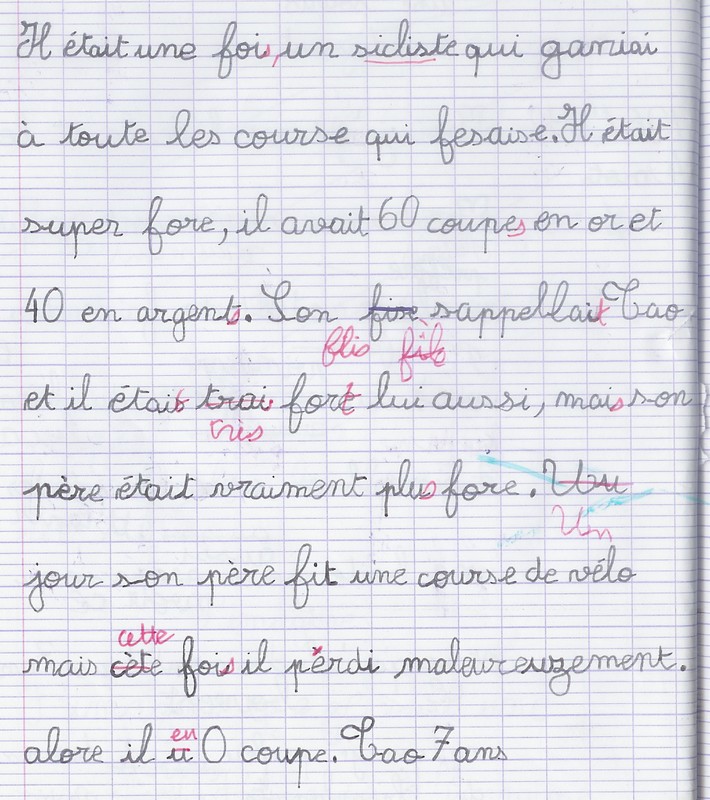 Il était une fois, un sicliste qui ganiai
à toute les course qui fesaise. Il était
super fore, il avait 60 coupes en or et
40 en argents. Son fire s'appellait Tao
flis fils
et il était trai fort lui aussi, mais son
très
père était vraiment plus fore. Un
Un
jour son père fit une course de vélo
cette
mais cète fois il perdi maleureuzement.
en
alore il u 0 coupe. Tao 7 ans